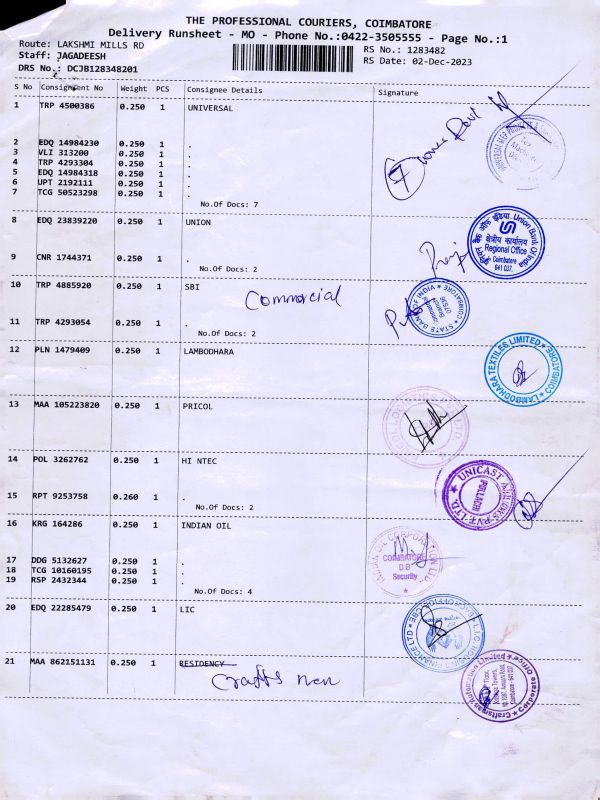 THE PROFESSIONAL COURIERS, COIMBATORE
Delivery Runsheet - MO - Phone No.:0422-3505555 - Page No.:1
Route: LAKSHMI MILLS RD
RS No.: 1283482
Staff: JAGADEESH
RS Date: 02-Dec-2023
DRS No.: DCJB128348201
S No Consignment No Weight PCS Consignee Details Signature
1 TRP 4500386 0.250 1 UNIVERSAL
2 EDQ 14984230 0.250 1 .
3 VLI 313200 0.250 1 .
4 TRP 4293304 0.250 1 .
5 EDQ 14984318 0.250 1 .
6 UPT 2192111 0.250 1 .
7 TCG 50523298 0.250 1 .
No.Of Docs: 7
7
8 EDQ 23839220 0.250 1 UNION
Union Bank Of India
क्षेत्रीय कार्यालय
Regional Office
Coimbatore
641 037.
9 CNR 1744371 0.250 1 .
No.Of Docs: 2
10 TRP 4885920 0.250 1 SBI
Commercial
STATE BANK OF INDIA
COIMBATORE
11 TRP 4293054 0.250 1 .
No.Of Docs: 2
12 PLN 1479409 0.250 1 LAMBODHARA
LAMBODHARA TEXTILES LIMITED
COIMBATORE
13 MAA 105223820 0.250 1 PRICOL
14 POL 3262762 0.250 1 HI NTEC
UNICAST
POLLACHI
15 RPT 9253758 0.260 1 .
No.Of Docs: 2
16 KRG 164286 0.250 1 INDIAN OIL
COIMBATORE
D.O
Security
17 DDG 5132627 0.250 1 .
18 TCG 10160195 0.250 1 .
19 RSP 2432344 0.250 1 .
No.Of Docs: 4
20 EDQ 22285479 0.250 1 LIC
21 MAA 862151131 0.250 1 RESIDENCY
Craftsman Automation Limited
Corporate Office